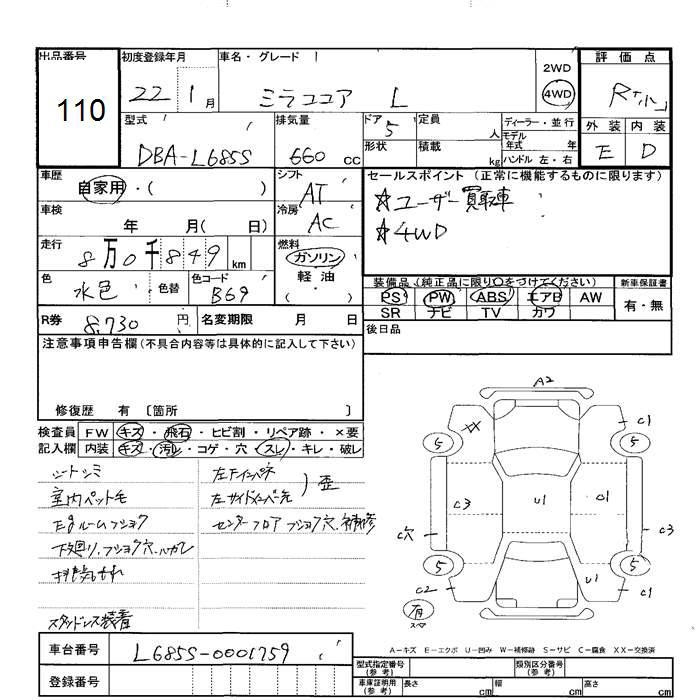 出品番号 初度登録年月 車名・グレード 2WD 評価点
110 22 1月 ミラココア L 4WD R
型式 排気量 ドア 定員 ディーラー・並行 外装 内装
DBA-L685S 660 cc 5 人 モデル年式 年 E D
形状 積載 kg ハンドル 左・右
車歴 シフト セールスポイント (正常に機能するものに限ります)
自家用・( ) AT ☆ユーザー買取車
車検 年 月( 日) 冷房 AC ☆4WD
走行 8万0千849 km 燃料 ガソリン
軽油
( )
色 水色 色替 色コード B69
装備品 (純正品に限り○をつけてください) 新車保証書
PS PW ABS エアB AW 有・無
SR ナビ TV カワ
R券 8,730円 名変期限 月 日 後日品
注意事項申告欄(不具合内容等は具体的に記入して下さい)
修復歴 有 〔箇所 〕
検査員 FW キズ・飛石・ヒビ割・リペア跡・×要
記入欄 内装 キズ・汚レ・コゲ・穴・スレ・キレ・破レ
シートシミ 左
室内ペット毛 左サイドインパネ 歪
ルームフショク センターフロアフショク穴、補修
下廻り、フショク穴、ハガレ
スタッドレス装着
A2
XX C1
5 5
C3 U1 C1
C穴 C3
5 5
C2 U1 C1
有
スペア
A-キズ E-エクボ U-凹み W-補修跡 S-サビ C-腐食 XX-交換済
車台番号 L685S-0001759
登録番号
型式指定番号(参考) 類別区分番号(参考)
車庫証明用(参考) 長さ cm 幅 cm 高さ cm